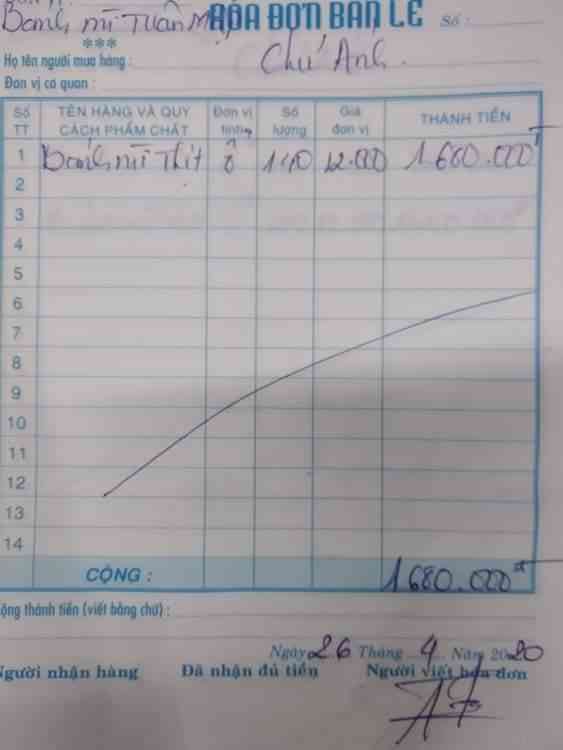 Bánh mì Tuấn Mập HÓA ĐƠN BÁN LẺ Số :
***
Họ tên người mua hàng : Chú Anh.
Đơn vị cơ quan :
Số TT TÊN HÀNG VÀ QUY CÁCH PHẨM CHẤT Đơn vị tính Số lượng Giá đơn vị THÀNH TIỀN
1 Bánh mì Thịt ổ 140 12.000 1680.000đ
2
3
4
5
6
7
8
9
10
11
12
13
14
CỘNG : 1680.000đ
Cộng thành tiền (viết bằng chữ) :
Ngày 26 Tháng 4 Năm 2020
Người nhận hàng Đã nhận đủ tiền Người viết hóa đơn